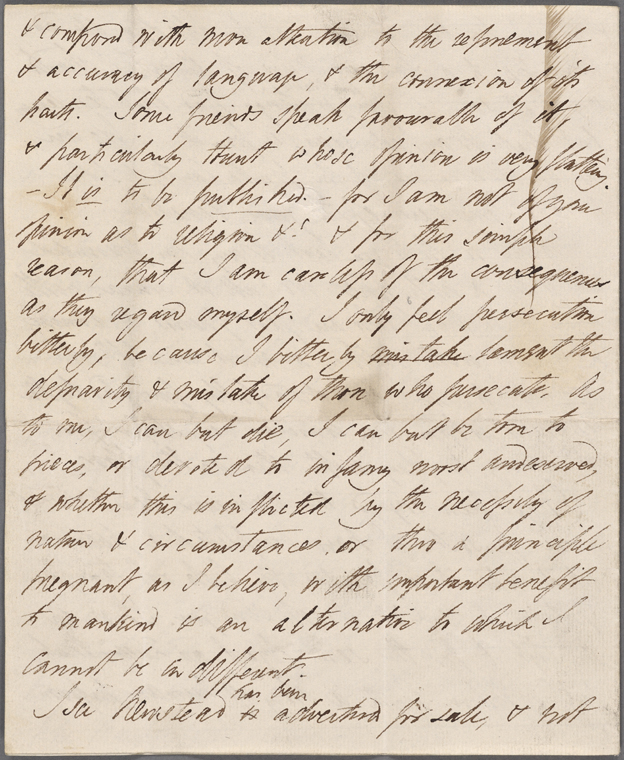 & composed with more attention to the refinement
& accuracy of language, & the connexion of its
parts. Some friends speak favourable of it,
& particularly Hunt whose opinion is very flattering.
– It is to be published. – for I am not of your
opinion as to religion &c. & for this simple
reason, that I am careless of the consequences
as they regard myself. I only feel persecution
bitterly, because I bitterly mistake lament the
depravity & mistake of those who persecute. As
to me, I can but die, I can but be torn to
pieces, or devoted to infamy most undeserved,
& whether this is inflicted by the necessity of
nature & circumstances, or thro a principle
pregnant, as I believe, with important benefit
to mankind is an alternative to which I
cannot be indifferent.
has been
I see Newstead is advertised for sale, & not